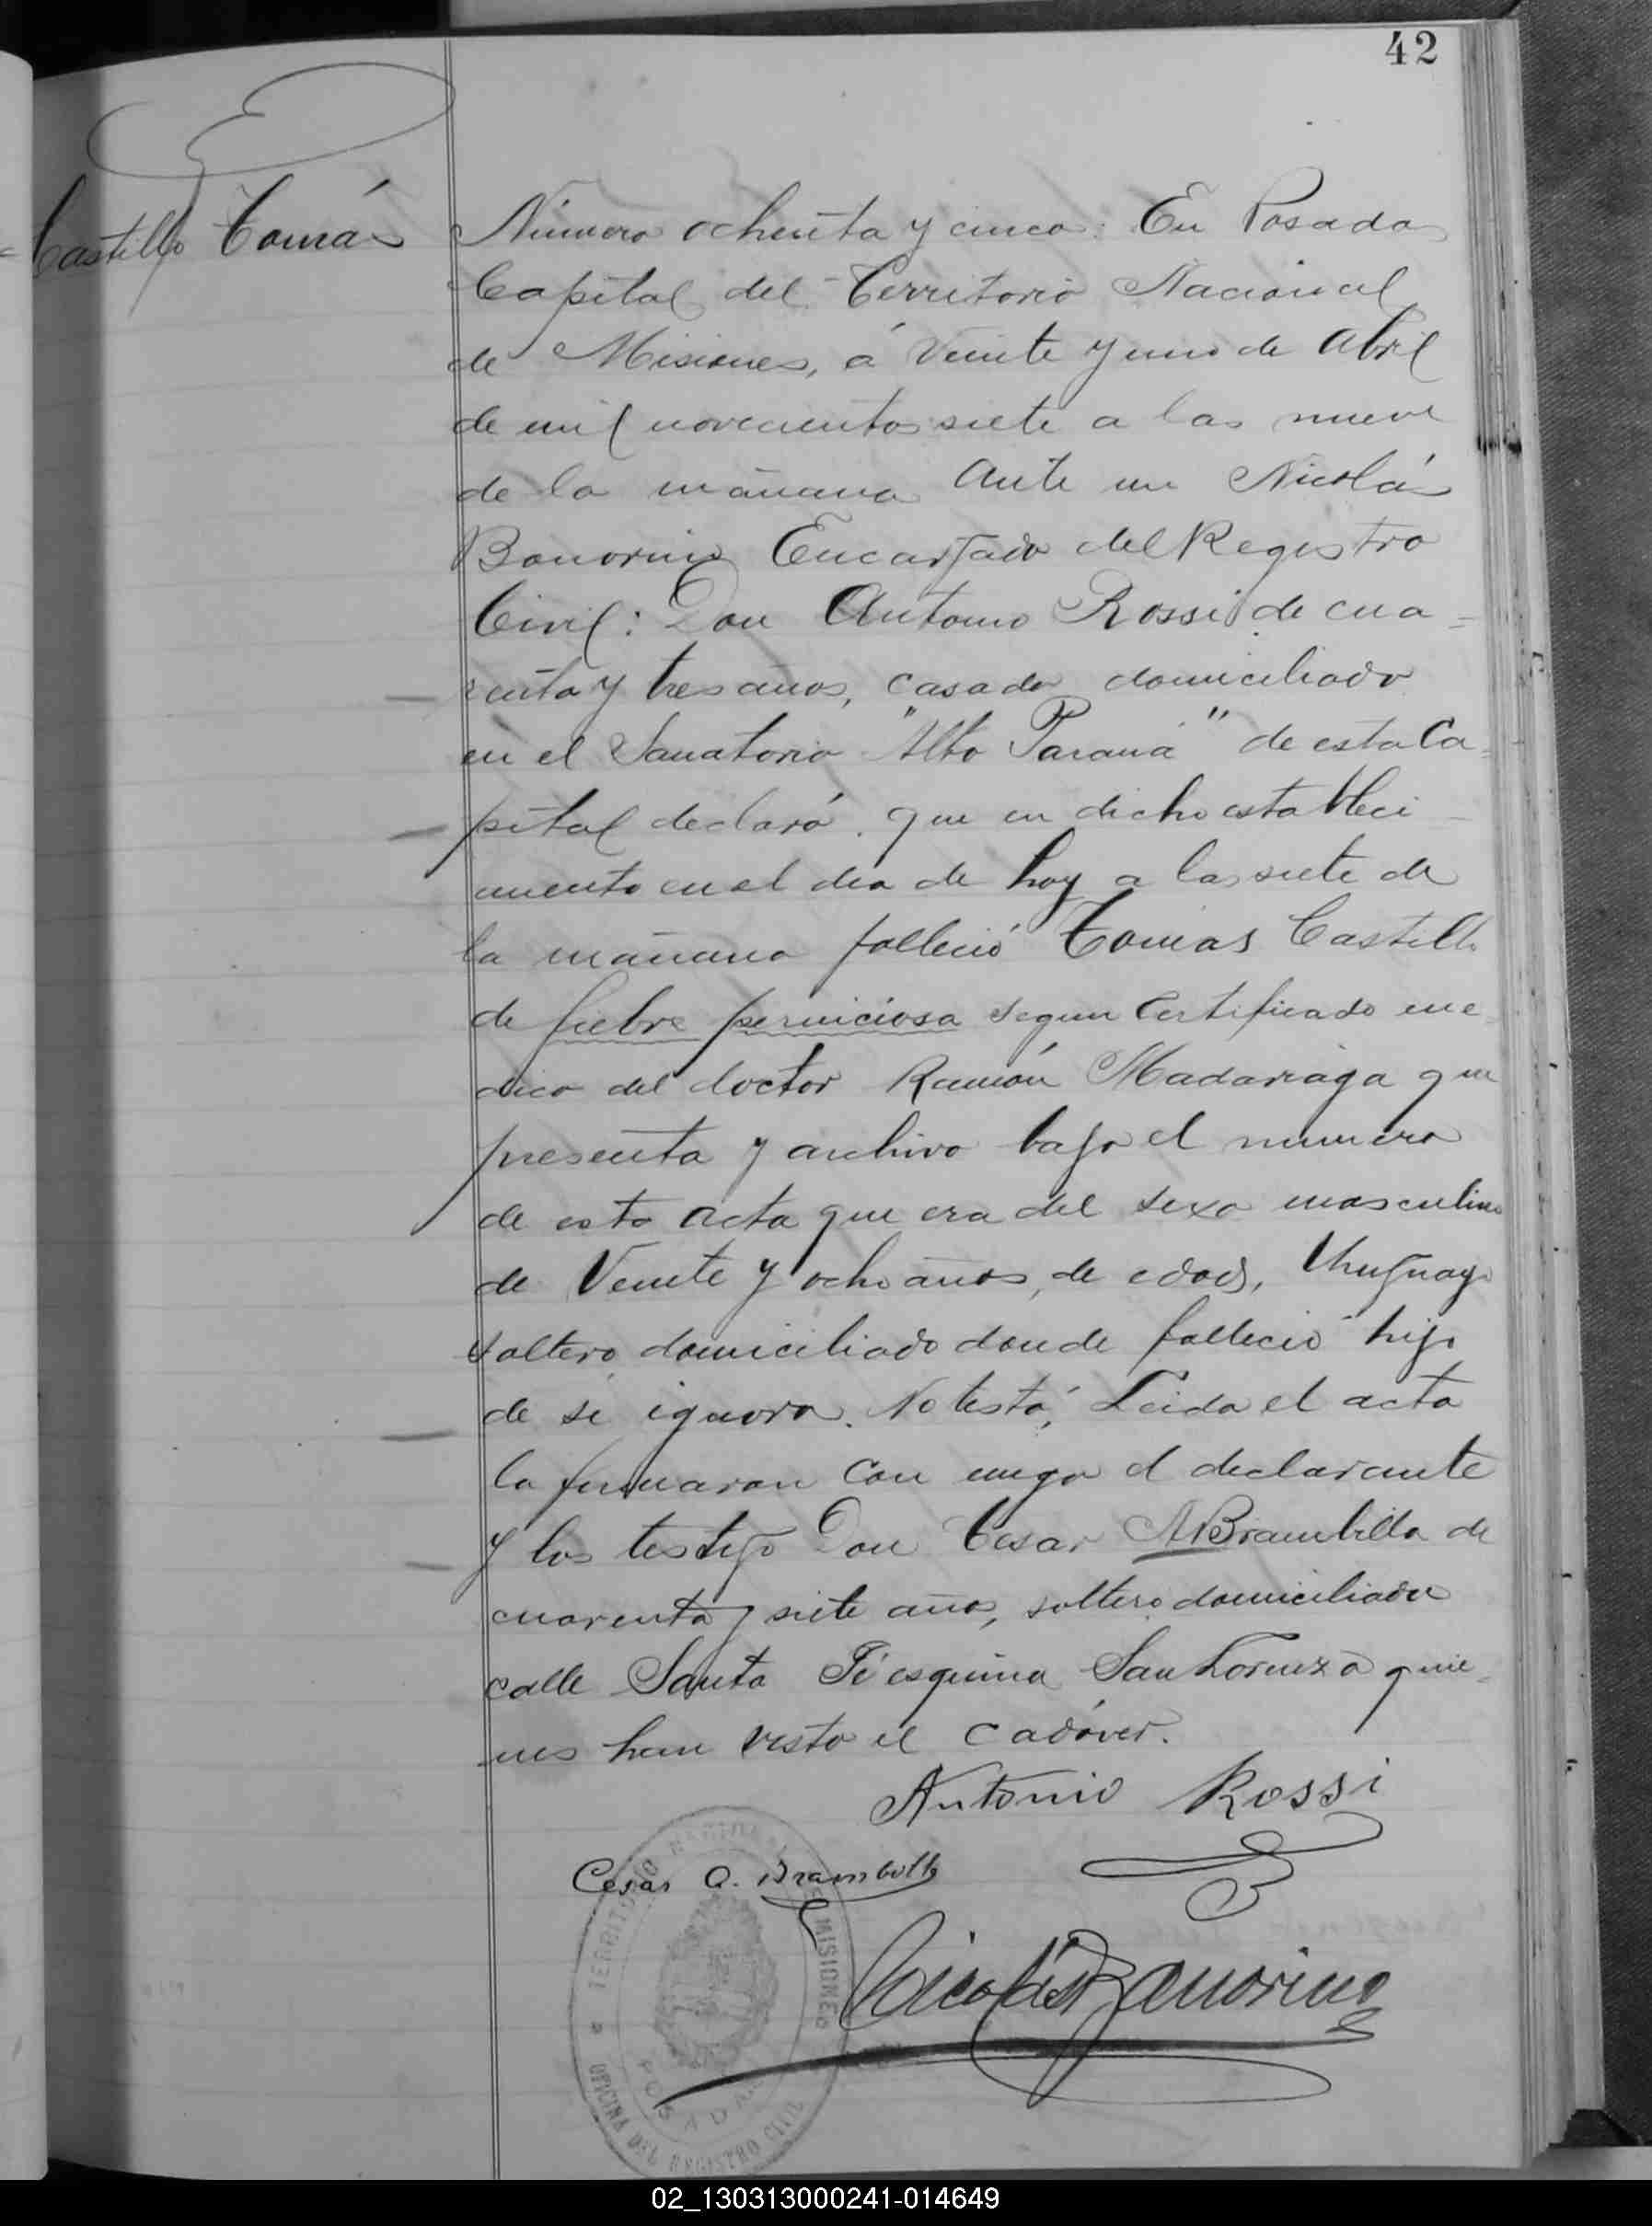 42
Castillo Tomás
Número ochenta y cinco: En Posadas
Capital del Territorio Nacional
de Misiones, á Veinte y uno de Abril
de mil novecientos siete a las nueve
de la mañana Ante mi Nicolás
Bonorino Encargado del Registro
Civil: Don Antonio Rossi de cua=
renta y tres años, casado domiciliado
en el Sanatorio "Alto Paraná" de esta Ca=
pital declaró: que en dicho estableci-
miento en el dia de hoy a las siete de
la mañana falleció Tomas Castillo
de fiebre perniciosa segun Certificado me-
dico del doctor Ramón Madariaga que
presenta y archivo bajo el numero
de esta acta que era del sexo masculino
de Veinte y ocho años, de edad, Uruguayo
soltero domiciliado donde falleció hijo
de se ignora. No testó, Leida el acta
la firmaron con migo el declarante
y los testigo Don Cesar A Brambilla de
cuarenta y siete años, soltero domiciliado
calle Santa Fé esquina San Lorenzo quie-
nes han visto el cadáver.
Antonio Rossi
Cesar A. Brambilla
Nicolás Bonorino
TERRITORIO NACIONAL DE MISIONES
POSADAS
OFICINA DEL REGISTRO CIVIL
02_130313000241-014649